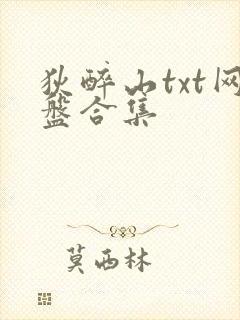 狄醉山txt网
盘合集
莫西林